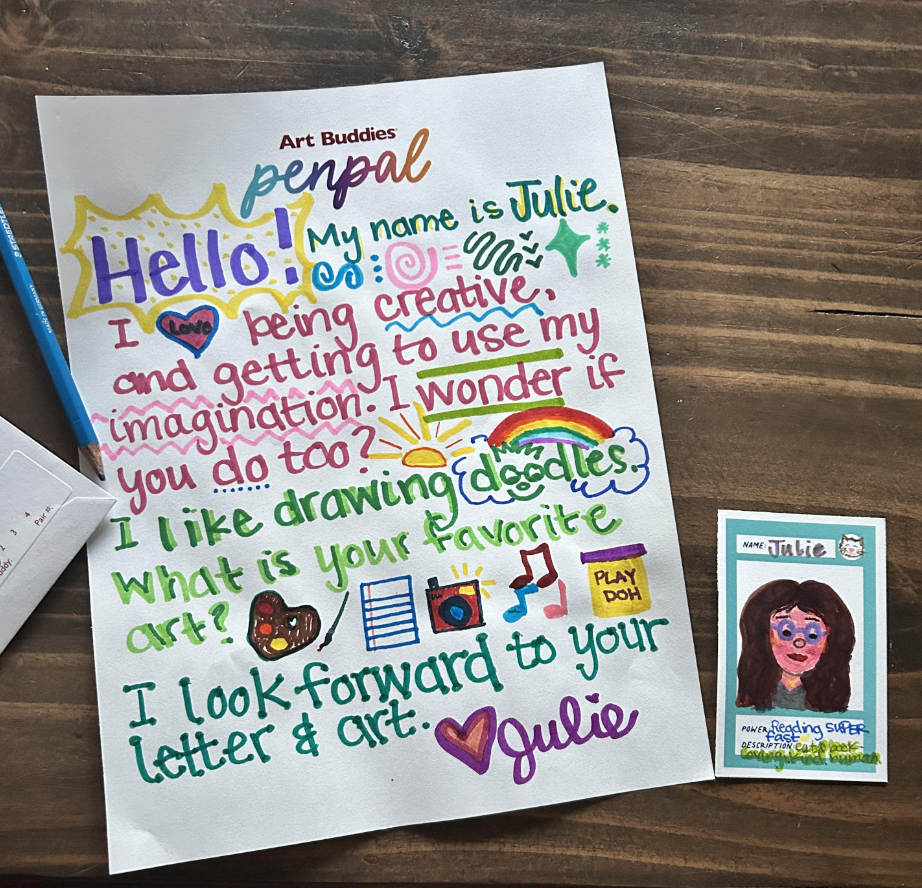 Art Buddies
penpal
Hello! My name is Julie.
I LOVE being creative,
and getting to use my
imagination. I wonder if
you do too?
I like drawing doodles.
What is your favorite
art?
PLAY
DOH
I look forward to your
letter & art.
Julie
STAEDTLER
MADE IN GERMANY
2 3 4
Pair #:
NAME: Julie
POWER: Reading SUPER
fast
DESCRIPTION: cat & book-
loving, kind human